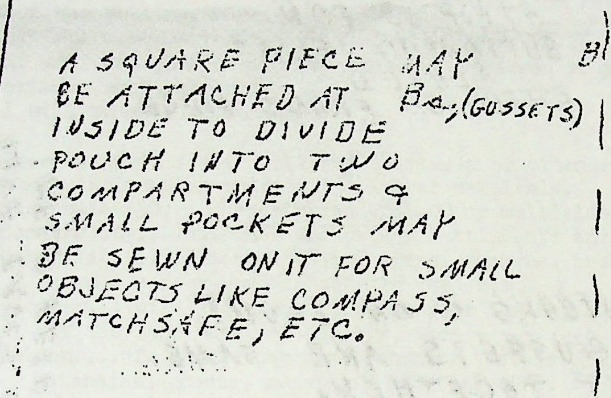 A SQUARE PIECE MAY
BE ATTACHED AT Ba,(GUSSETS)
INSIDE TO DIVIDE
POUCH INTO TWO
COMPARTMENTS &
SMALL POCKETS MAY
BE SEWN ON IT FOR SMALL
OBJECTS LIKE COMPASS,
MATCHSAFE, ETC.
B